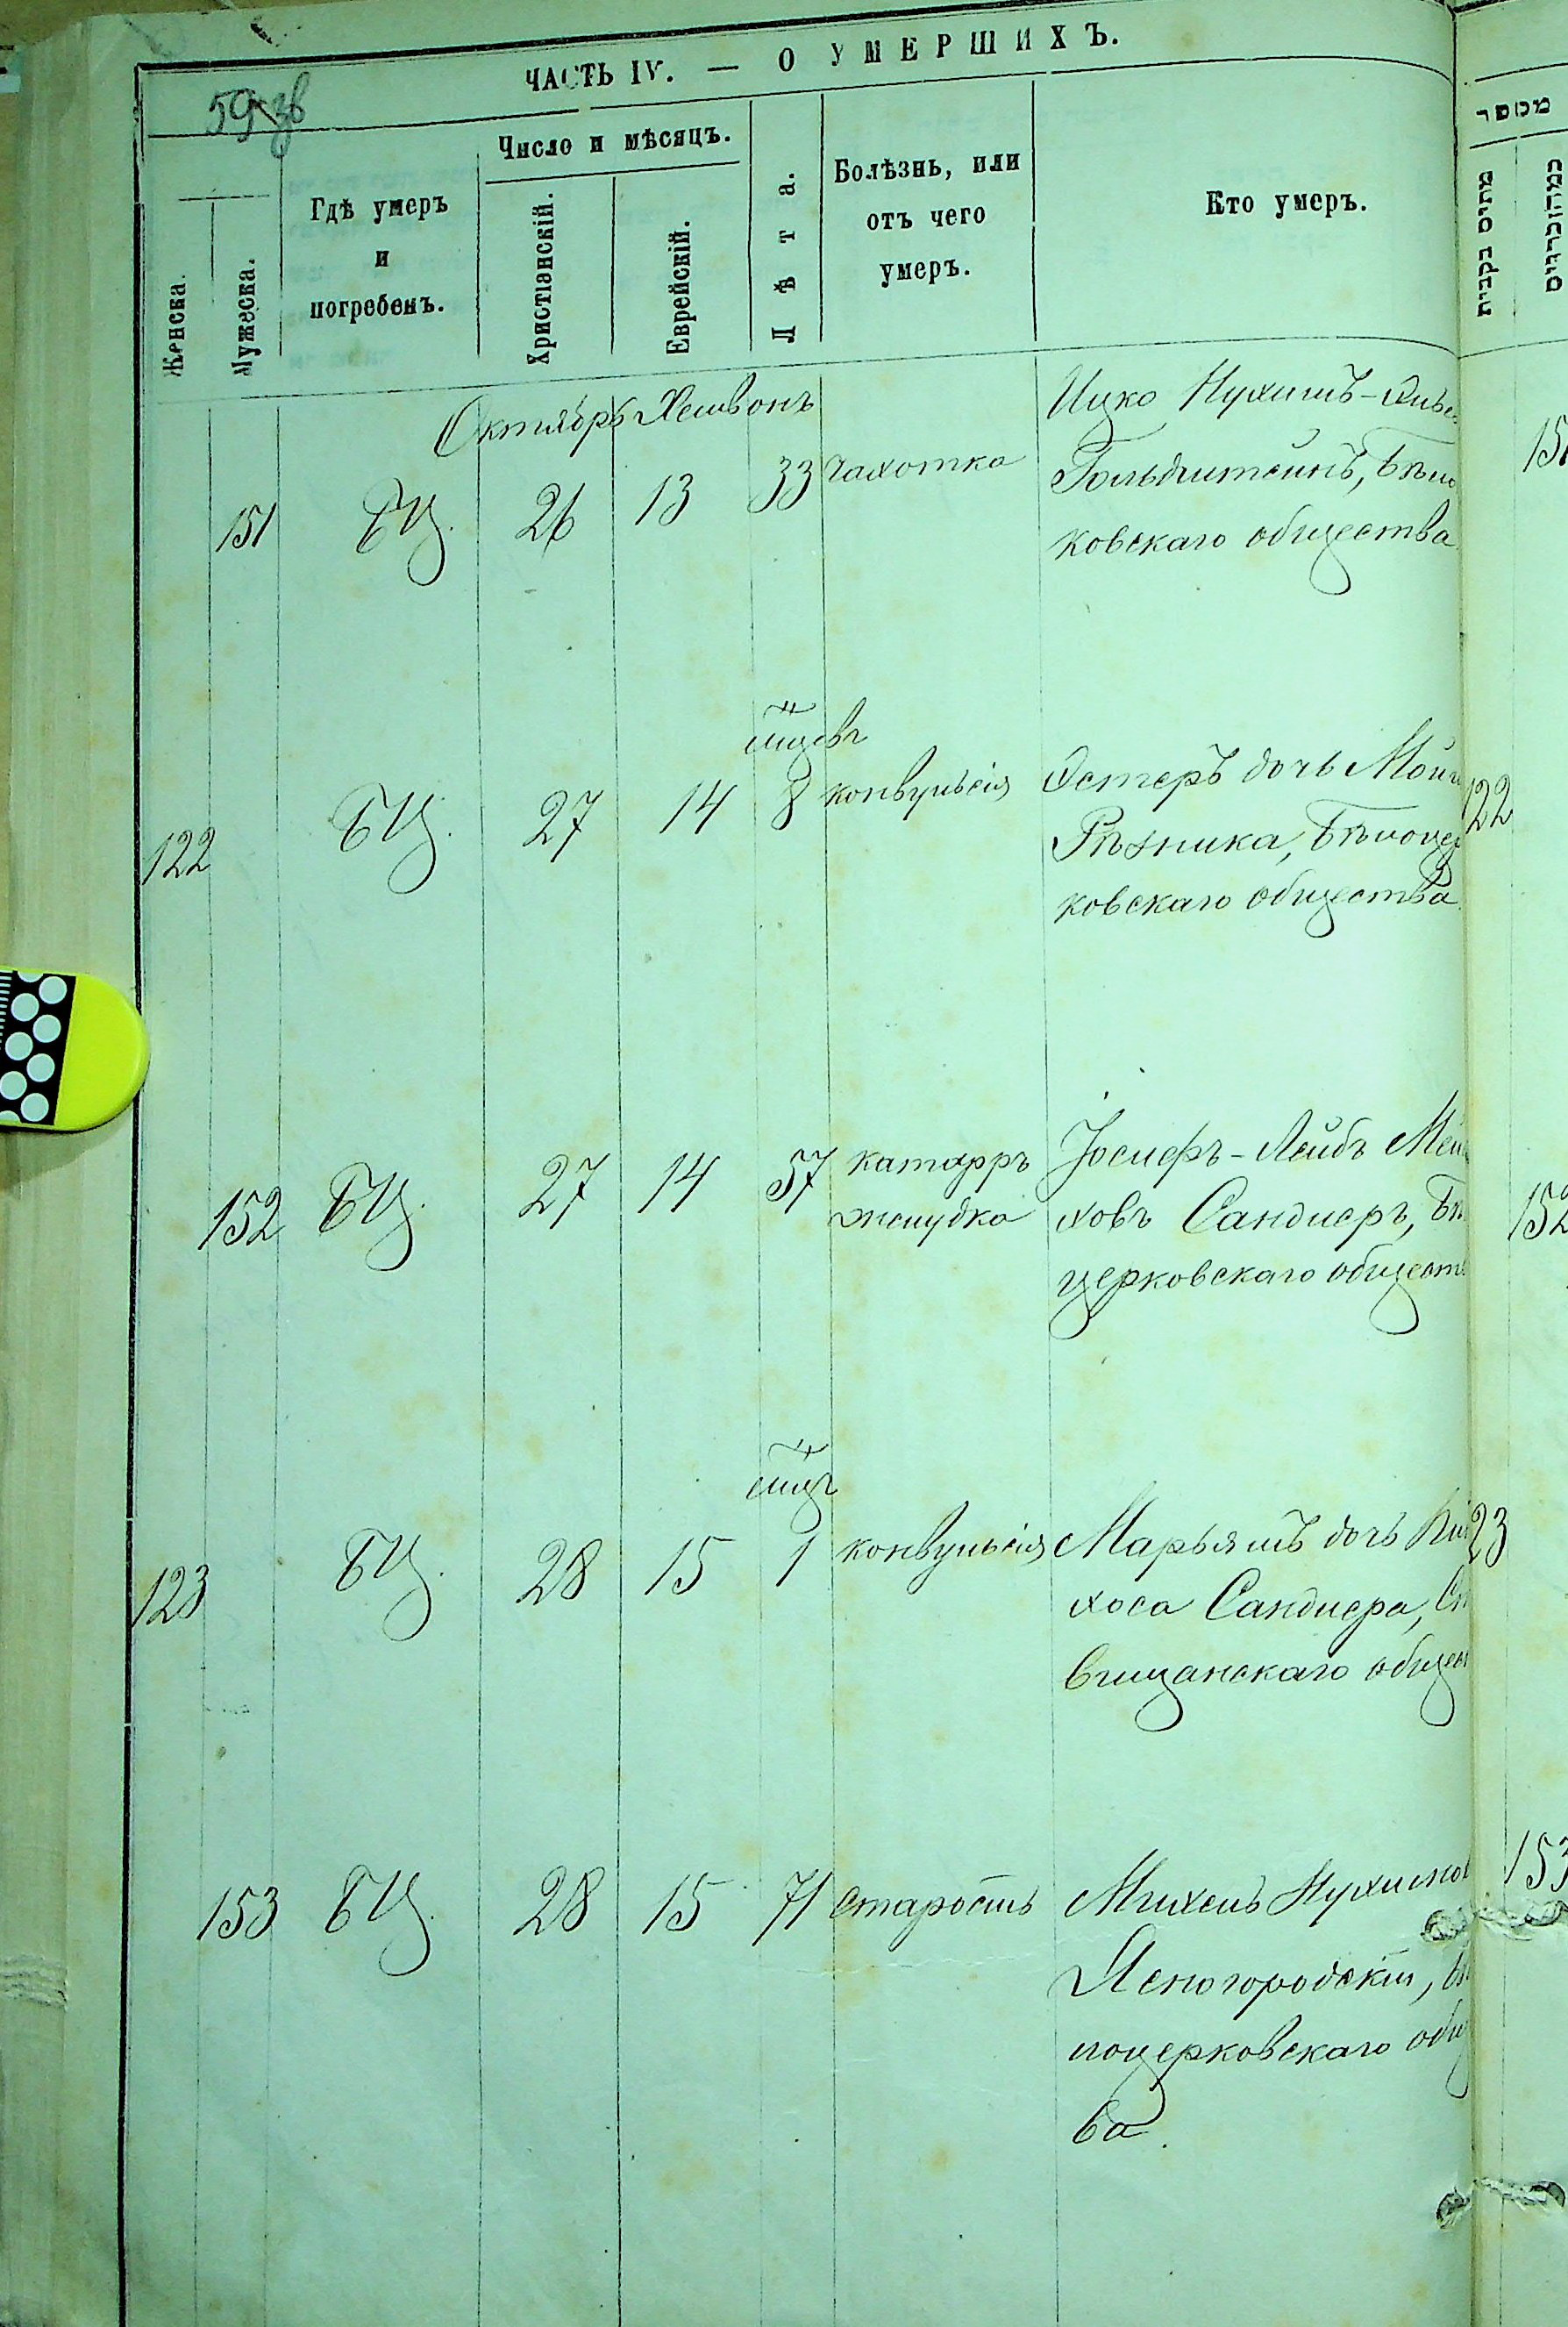 ЧАСТЬ IV. — О УМЕРШИХЪ.
59 зв
Женска.
Мужеска.
Гдѣ умеръ
и
погребенъ.
Число и мѣсяцъ.
Христіанскій.
Еврейскій.
Лѣта.
Болѣзнь, или
отъ чего
умеръ.
Кто умеръ.
מספר
מתים בקבית
Октябрь Хешвонъ
151 БЦ. 26 13 33 Чахотка Ицко Нухимъ-
Гольдштейнъ, Бѣло
ковскаго общества
151
мцевъ
122 БЦ. 27 14 8 конвульсія Эстеръ дочь Мош
Рѣзника, Бѣлоцер
ковскаго общества
122
152 БЦ. 27 14 57 катарръ Іосифъ-Лейбъ Мен
желудка ховъ Сандлеръ, Бѣ
церковскаго обществ
152
мцъ
123 БЦ. 28 15 1 конвульсія Марьямъ дочь Пи
хоса Сандлера, Ст
вищанскаго общес
23
153 БЦ. 28 15 71 Старость Михель Нухимов
Ясногородскій, Бѣ
лоцерковскаго общ
ва.
153